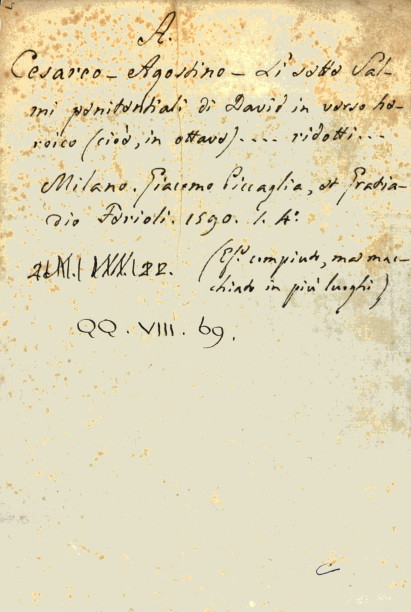 A.
Cesareo - Agostino - Li sette Sal-
mi penitentiali di David in verso he-
roico (cioè, in ottava) .... ridotti...
Milano. Giacomo Piccaglia, et Gratia-
dio Ferioli. 1590. l. 4°.
(Es. compiuto, ma mac-
chiato in più luoghi)
QQ. VIII. 69.
C